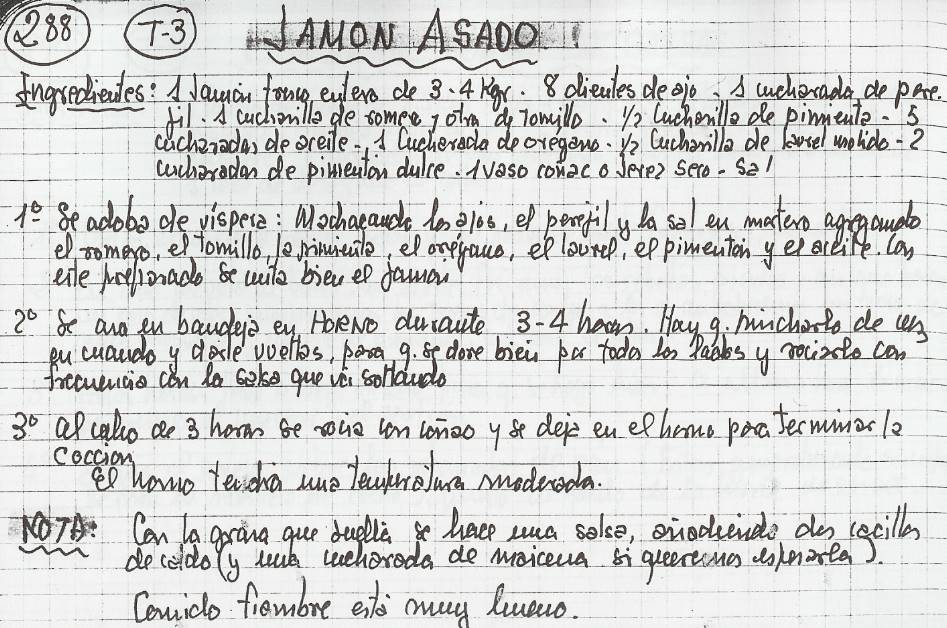 288 T-3 JAMON ASADO !
Ingredientes: 1 Jamón fresco entero de 3-4 Kgr. 8 dientes de ajo. 1 cucharada de pere-
jil. 1 cucharilla de romero y otra de Tomillo. 1/2 Cucharilla de pimienta - 5
cucharadas de aceite - 1 Cucharada de orégano. 1/2 Cucharilla de laurel molido - 2
cucharadas de pimentón dulce. 1 vaso coñac o Jerez seco - Sal
1º Se adoba de víspera: Machacando los ajos, el perejil y la sal en mortero agregando
el romero, el tomillo, la pimienta, el orégano, el laurel, el pimentón y el aceite. Con
este preparado se unta bien el jamón
2º Se asa en bandeja en HORNO durante 3-4 horas. Hay q. pincharlo de vez
en cuando y darle vueltas, para q. se dore bien por todos los lados y rociarlo con
frecuencia con la salsa que vá soltando
3º al cabo de 3 horas se rocia con coñac y se deja en el horno para Terminar la
cocción
El horno tendrá una Temperatura moderada.
NOTA: Con la grasa que suelta se hace una salsa, añadiendo dos cacillos
de caldo (y una cucharada de maicena si queremos espesarla).
Comido fiambre está muy bueno.